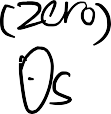 (zero)
0s